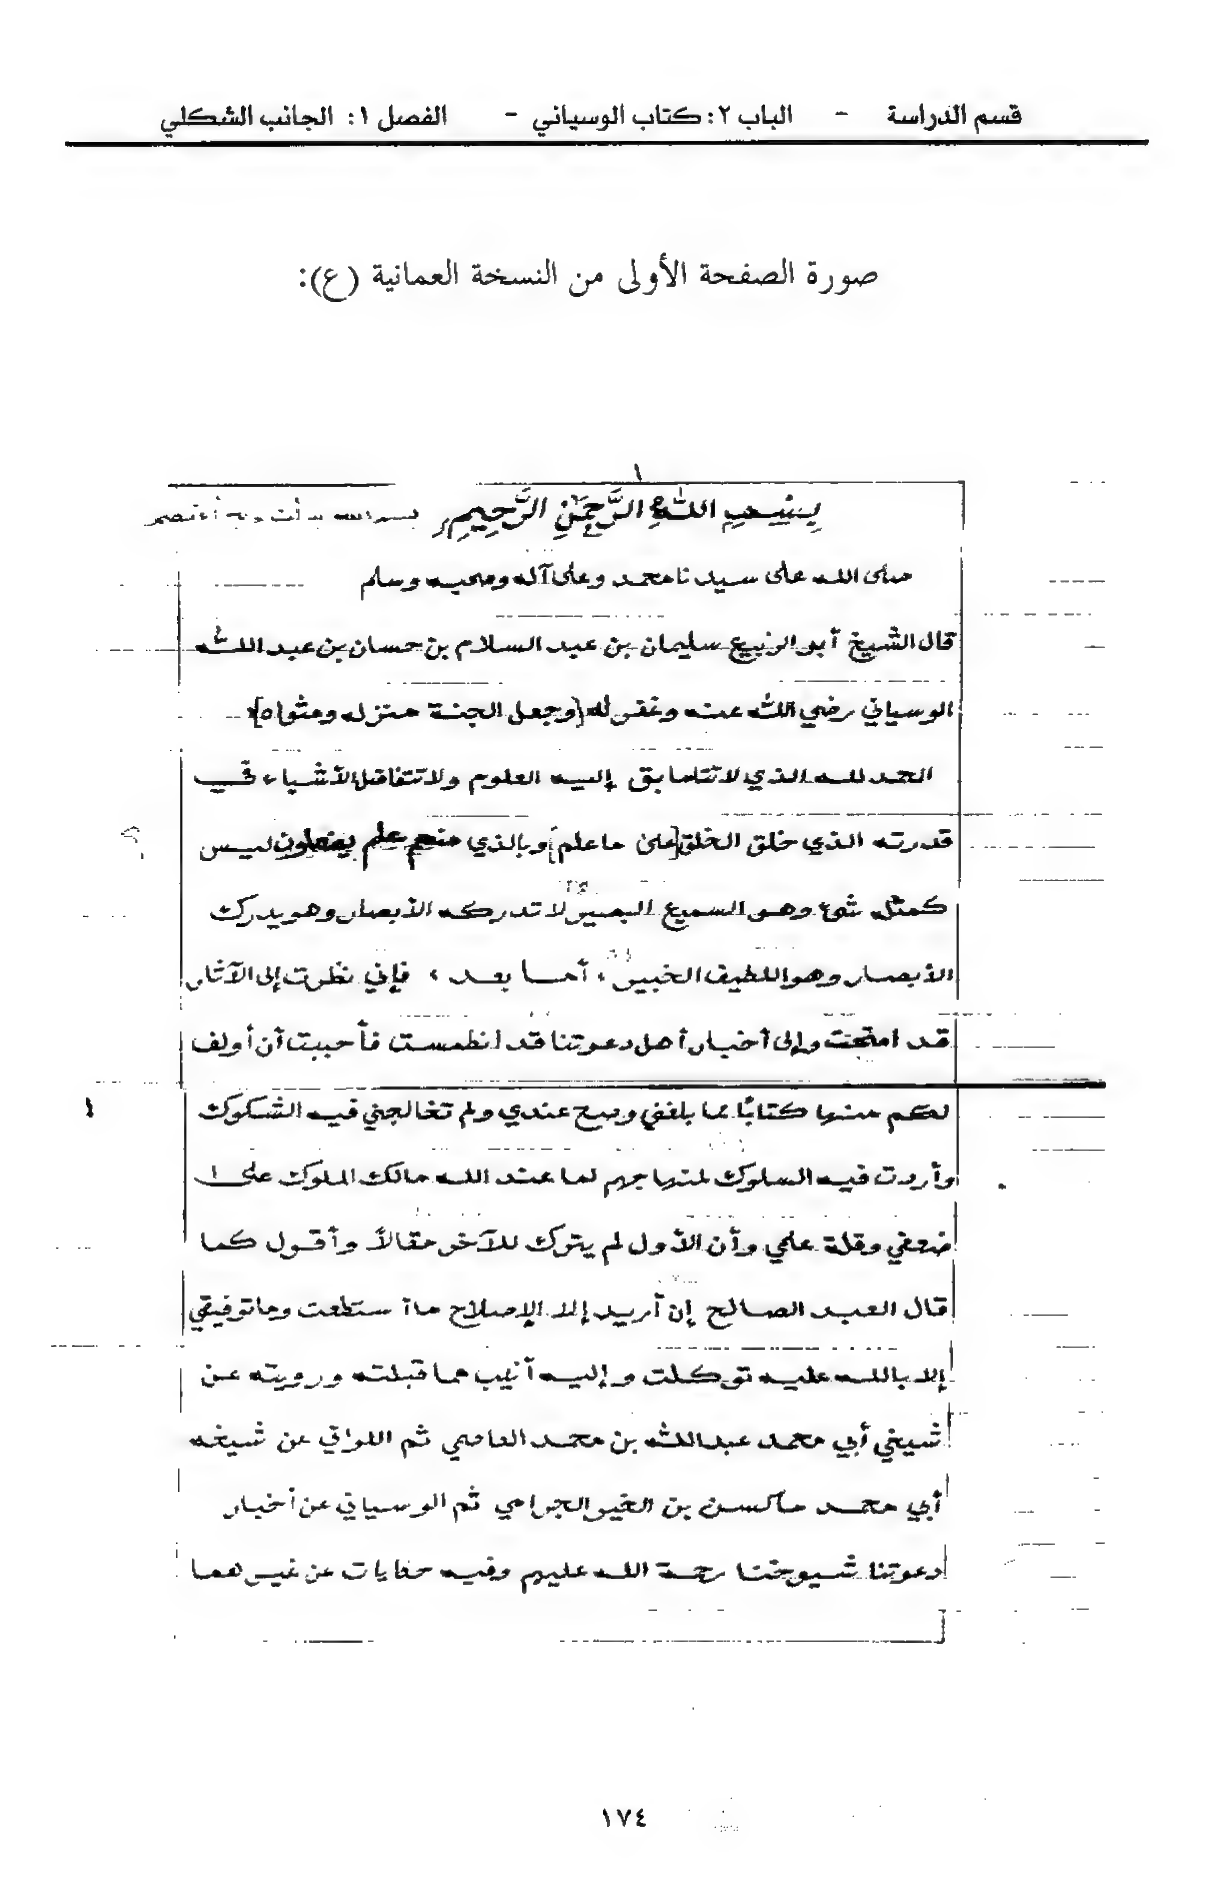 قسم الدراسة - الباب ٢: كتاب الوسياني - الفصل ١: الجانب الشكلي
صورة الصفحة الأولى من النسخة العمانية (ع):
١
بِسْمِ اللهِ الرَّحْمَنِ الرَّحِيمِ
صلى الله على سيدنا محمد وعلى آله وصحبه وسلم
قال الشيخ أبو الربيع سليمان بن عبد السلام بن حسان بن عبد الله
الوسياني رضي الله عنه وغفر له [وجعل الجنة منزله ومثواه]
الحمد لله الذي لا تتسابق إليه العلوم ولا تتفاضل الأشياء في
قدرته الذي خلق الخلق [على ما علم] وبالذي منهم علم يفعلون ليس
كمثله شيء وهو السميع البصير لا تدركه الأبصار وهو يدرك
الأبصار وهو اللطيف الخبير، أما بعد، فإني نظرت إلى الآثار
قد امتحت وإلى أخبار أهل دعوتنا قد انطمست فأحببت أن أولف
لكم منها كتابًا مما بلغني وصح عندي ولم تخالجني فيه الشكوك
وأردت فيه السلوك لمنهاجهم لما عند الله مالك الملوك على
ضعفي وقلة علمي وأن الأول لم يترك للآخر مقالاً وأقول كما
قال العبد الصالح إن أريد إلا الإصلاح ما استطعت وما توفيقي
إلا بالله عليه توكلت وإليه أنيب مما قبلته ورويته عن
شيخي أبي محمد عبد الله بن محمد العاصمي ثم اللواتي عن شيخه
أبي محمد ماكسن بن الخير الجرامي ثم الوسياني عن أخبار
دعوتنا شيوخنا رحمة الله عليهم وفيه حكايات عن غيرهما
١٧٤